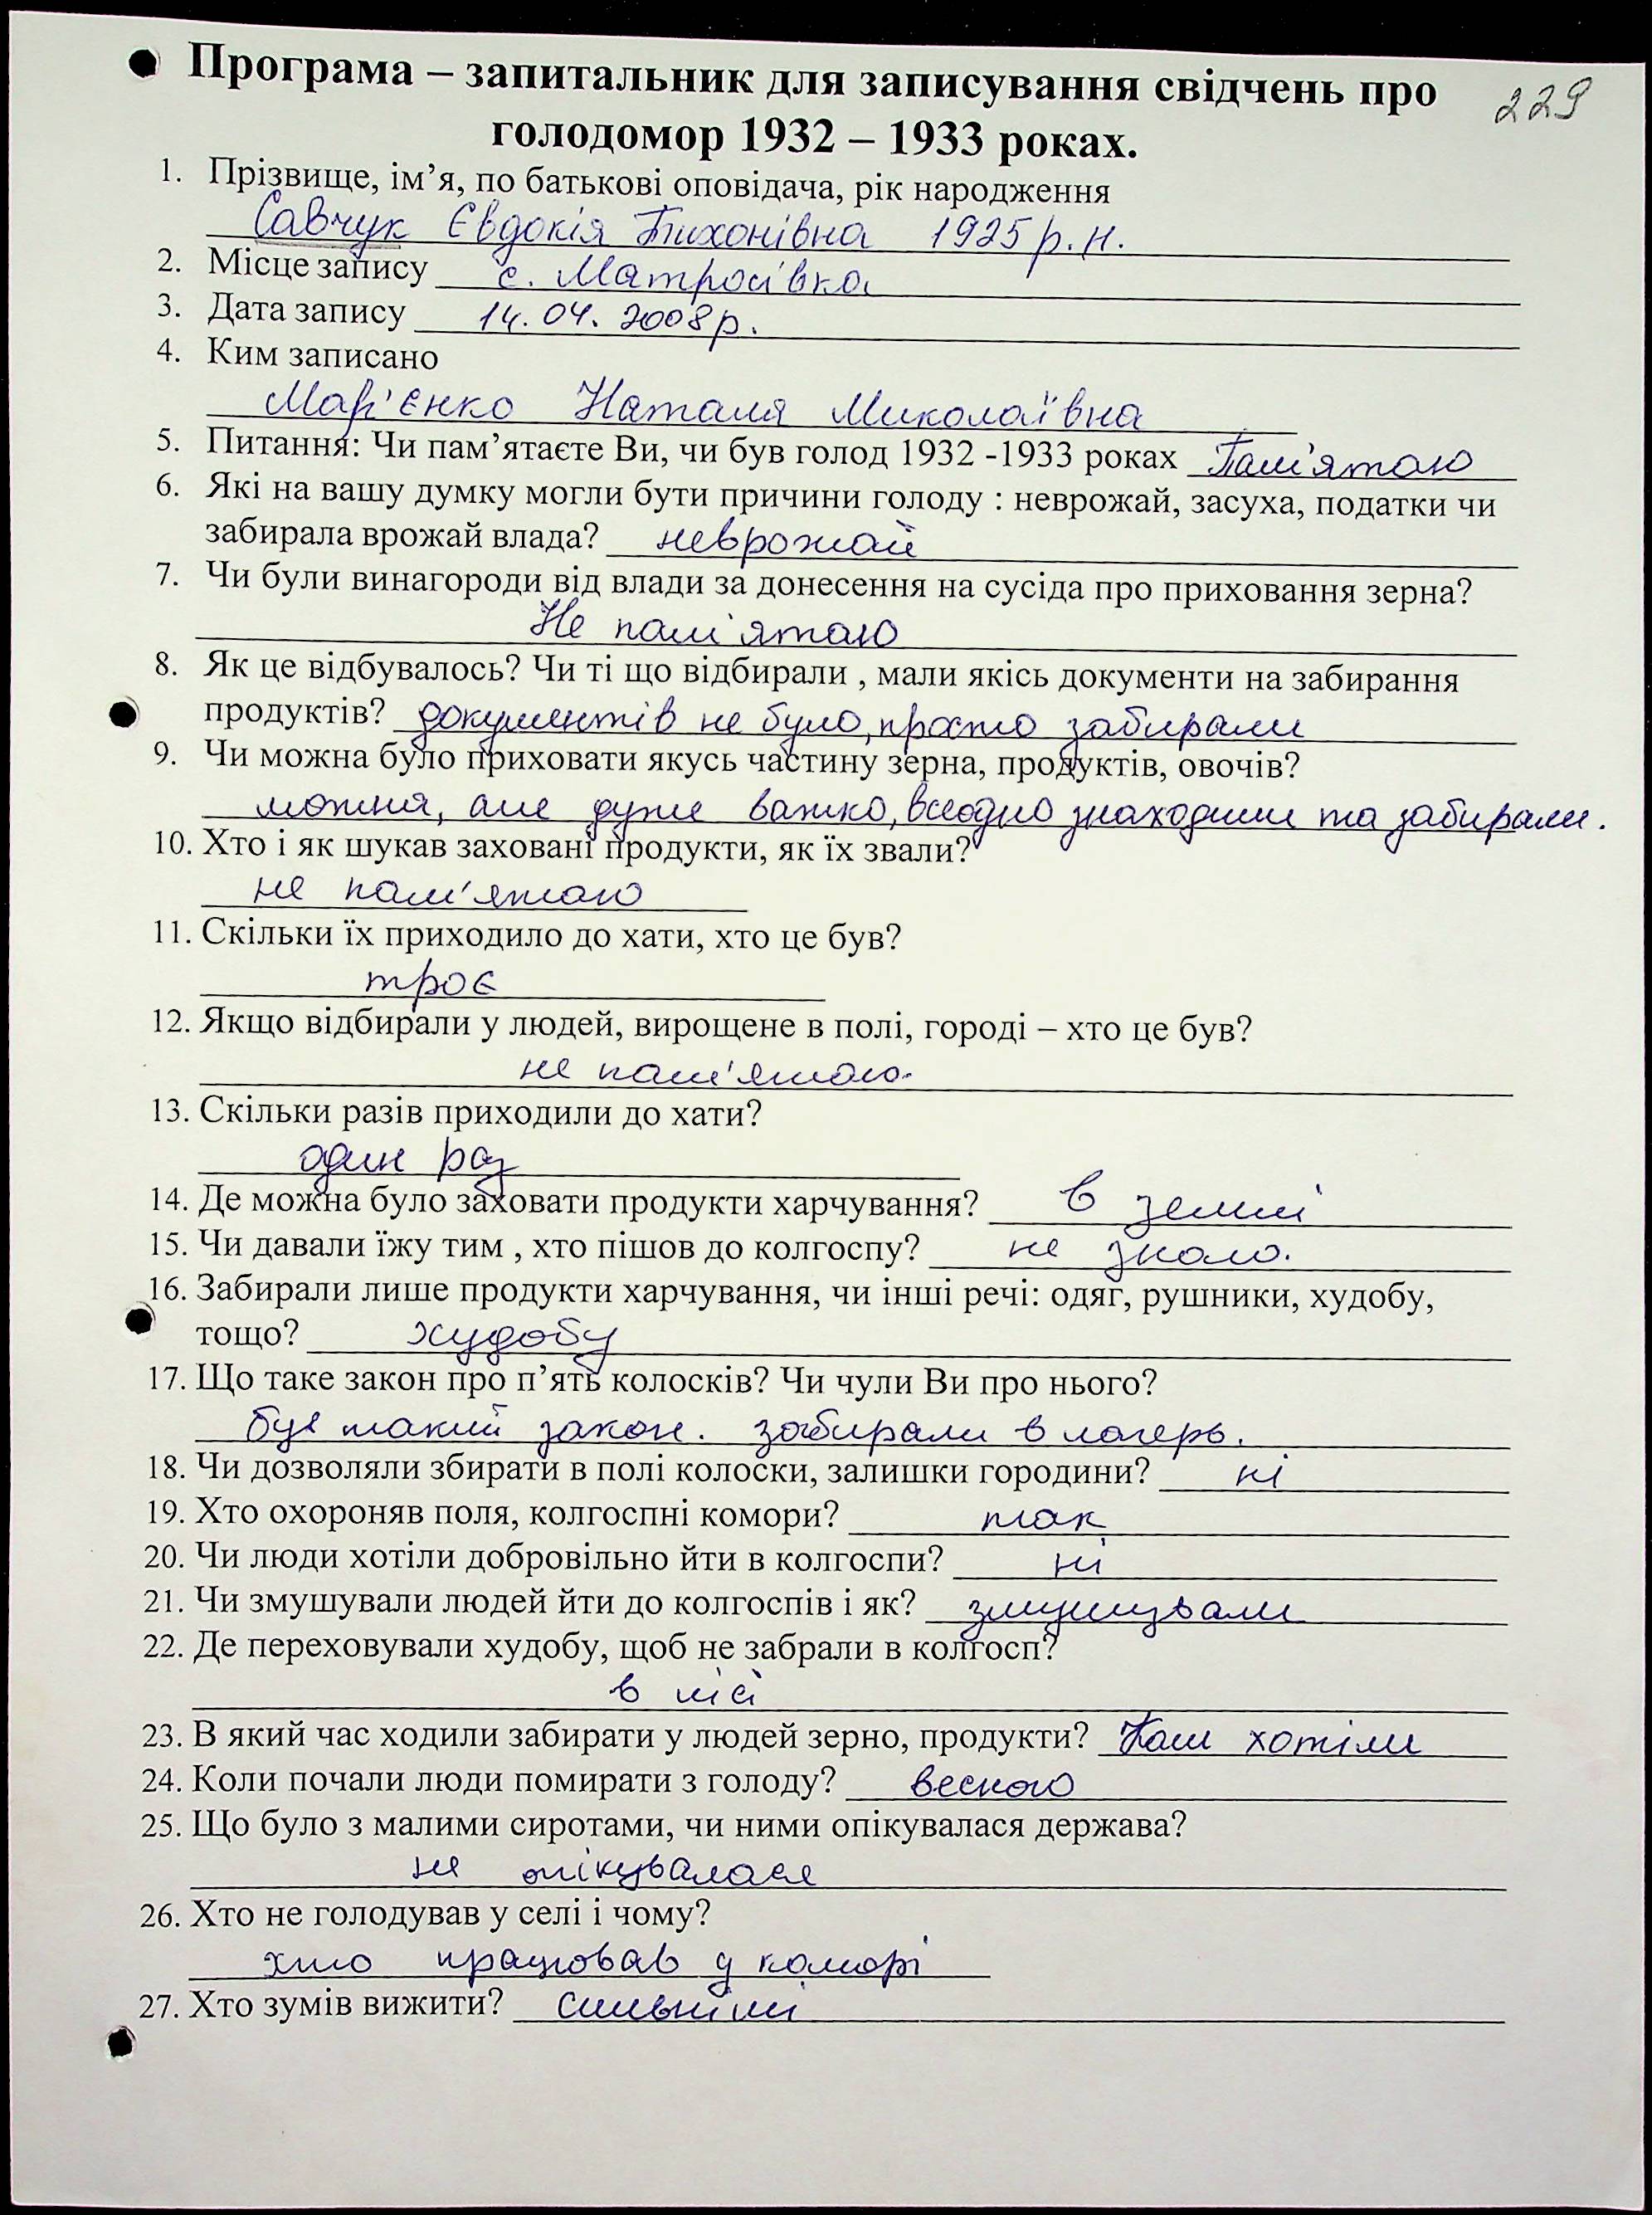 Програма – запитальник для записування свідчень про
229
голодомор 1932 – 1933 роках.
1. Прізвище, ім’я, по батькові оповідача, рік народження
Савчук Євдокія Тихонівна 1925 р.н.
2. Місце запису с. Матросівка
3. Дата запису 14.04.2008р.
4. Ким записано
Мар'єнко Наталя Миколаївна
5. Питання: Чи пам’ятаєте Ви, чи був голод 1932 -1933 роках Пам'ятаю
6. Які на вашу думку могли бути причини голоду : неврожай, засуха, податки чи
забирала врожай влада? неврожай
7. Чи були винагороди від влади за донесення на сусіда про приховання зерна?
Не пам'ятаю
8. Як це відбувалось? Чи ті що відбирали , мали якісь документи на забирання
продуктів? документів не було, просто забирали
9. Чи можна було приховати якусь частину зерна, продуктів, овочів?
можна, але дуже важко, всеодно знаходили та забирали.
10. Хто і як шукав заховані продукти, як їх звали?
не пам'ятаю
11. Скільки їх приходило до хати, хто це був?
троє
12. Якщо відбирали у людей, вирощене в полі, городі – хто це був?
не пам'ятаю.
13. Скільки разів приходили до хати?
один раз
14. Де можна було заховати продукти харчування? в землі
15. Чи давали їжу тим , хто пішов до колгоспу? не знаю.
16. Забирали лише продукти харчування, чи інші речі: одяг, рушники, худобу,
тощо? худобу
17. Що таке закон про п’ять колосків? Чи чули Ви про нього?
був такий закон. забирали в лагерь.
18. Чи дозволяли збирати в полі колоски, залишки городини? ні
19. Хто охороняв поля, колгоспні комори? так
20. Чи люди хотіли добровільно йти в колгоспи? ні
21. Чи змушували людей йти до колгоспів і як? змушували
22. Де переховували худобу, щоб не забрали в колгосп?
в лісі
23. В який час ходили забирати у людей зерно, продукти? Як хотіли
24. Коли почали люди помирати з голоду? весною
25. Що було з малими сиротами, чи ними опікувалася держава?
не опікувалася
26. Хто не голодував у селі і чому?
хто працював у коморі
27. Хто зумів вижити? сильніші